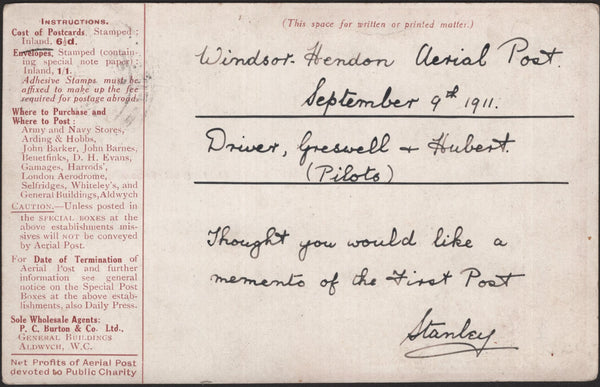 INSTRUCTIONS.
Cost of Postcards, Stamped:
Inland, 6½d.
Envelopes, Stamped (contain-
ing special note paper)
Inland, 1/1.
Adhesive Stamps must be
affixed to make up the fee
required for postage abroad.
Where to Purchase and
Where to Post:
Army and Navy Stores,
Arding & Hobbs,
John Barker, John Barnes,
Benetfinks, D. H. Evans,
Gamages, Harrods',
London Aerodrome,
Selfridges, Whiteley's, and
General Buildings, Aldwych
CAUTION.—Unless posted in
the SPECIAL BOXES at the
above establishments mis-
sives will NOT be conveyed
by Aerial Post.
For Date of Termination of
Aerial Post and further
information see general
notice on the Special Post
Boxes at the above estab-
lishments, also Daily Press.
Sole Wholesale Agents:
P. C. Burton & Co. Ltd.,
GENERAL BUILDINGS
ALDWYCH, W.C.
Net Profits of Aerial Post
devoted to Public Charity
(This space for written or printed matter.)
Windsor-Hendon Aerial Post.
September 9th 1911.
Driver, Greswell & Hubert.
(Pilots)
Thought you would like a
memento of the First Post
Stanley.